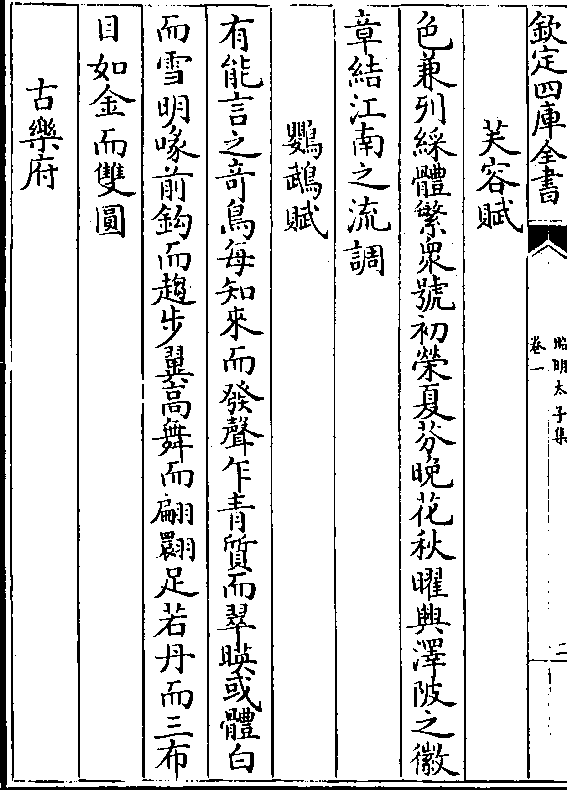 欽定四庫全書
昭明太子集
卷一
二
芙容賦
色兼列綵體繁衆號初榮夏芬晚花秋曜興澤陂之徽
章結江南之流調
鸚鵡賦
有能言之奇鳥每知來而發聲乍青質而翠映或體白
而雪明喙前鈎而趨步翼高舞而翩翾足若丹而三布
目如金而雙圓
古樂府